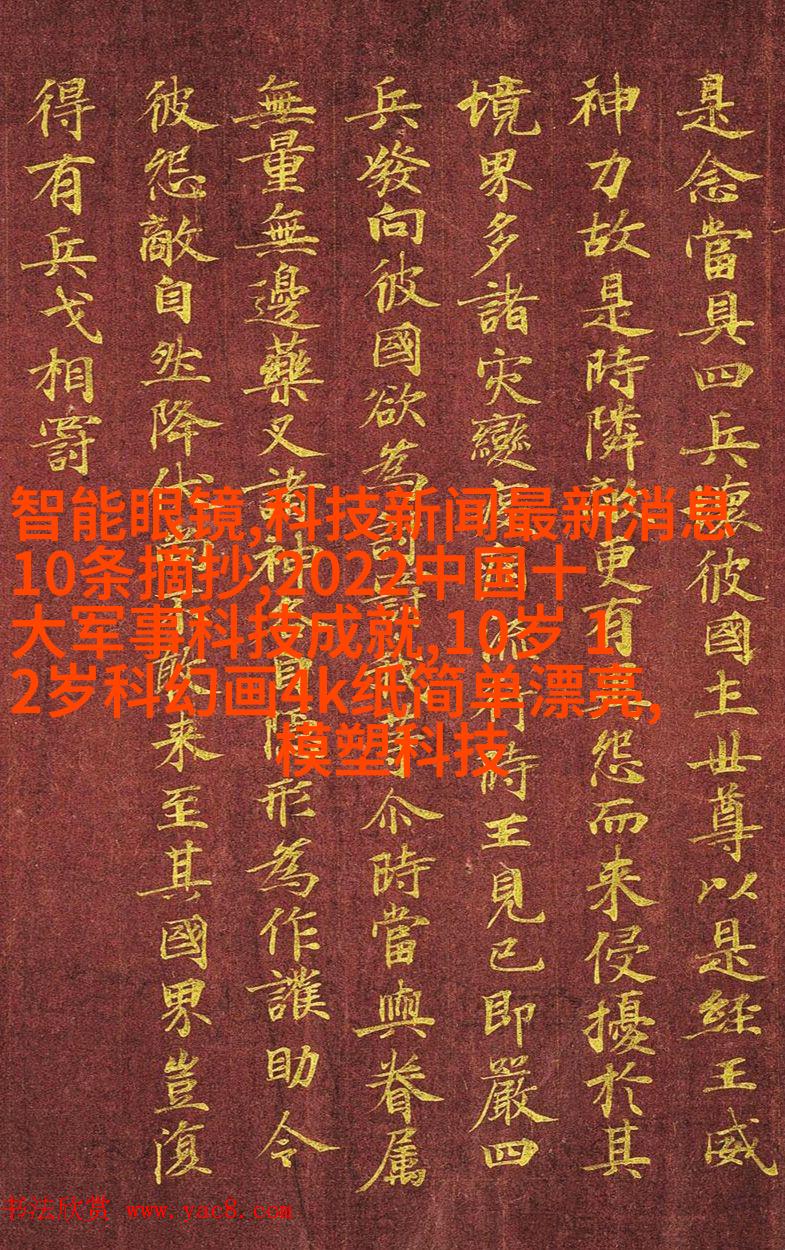 是念當具四兵壞彼國土世尊以是經王威
神力故是時隣敵更有異怨而来侵擾於其
境界多諸灾變流行時王見已即嚴四
兵發向彼國欲為討罰我等尒時當與眷属
無量無邊藥叉諸神各自隱形為作護助令
彼怨敵自然降伏尚不敢来至其國界豈復
得有兵戈相罸
智能眼镜,科技新闻最新消息
10条摘抄,2022中国十
大军事科技成就,10岁 1
2岁科幻画4k纸简单漂亮,
模塑科技
书法欣赏 www.yac8.com